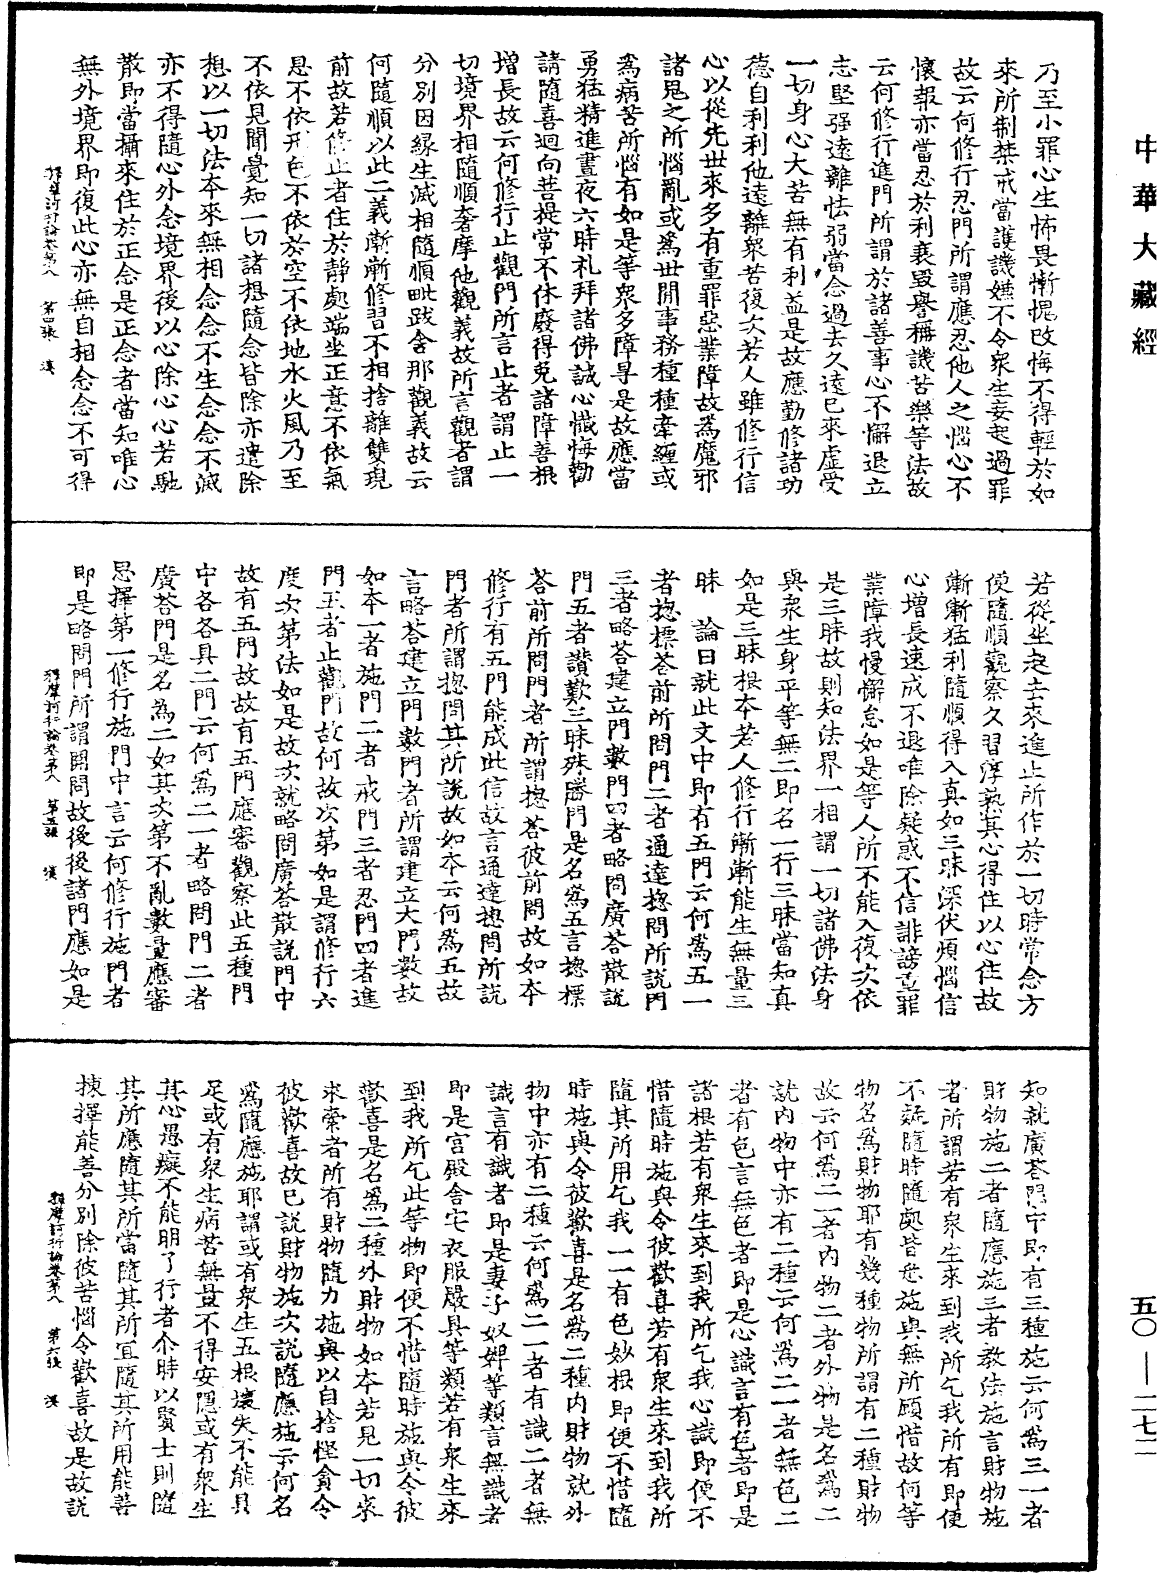 中華大藏經
乃至小罪心生怖畏慚愧改悔不得輕於如
來所制禁戒當護譏嫌不令衆生妄起過罪
故云何修行忍門所謂應忍他人之惱心不
懷報亦當忍於利衰毀譽稱譏苦樂等法故
云何修行進門所謂於諸善事心不懈退立
志堅强遠離怯弱當念過去久遠已來虛受
一切身心大苦無有利益是故應勤修諸功
德自利利他遠離衆苦復次若人雖修行信
心以從先世來多有重罪惡業障故爲魔邪
諸鬼之所惱亂或爲世間事務種種牽纏或
爲病苦所惱有如是等衆多障㝵是故應當
勇猛精進晝夜六時礼拜諸佛誠心懺悔勸
請隨喜迴向菩提常不休廢得免諸障善根
增長故云何修行止觀門所言止者謂止一
切境界相隨順奢摩他觀義故所言觀者謂
分別因緣生滅相隨順毗跋舍那觀義故云
何隨順以此二義漸漸修習不相捨離雙現
前故若修止者住於靜處端坐正意不依氣
息不依形色不依於空不依地水火風乃至
不依見聞覺知一切諸想隨念皆除亦遣除
想以一切法本來無相念念不生念念不滅
亦不得隨心外念境界後以心除心心若馳
散即當攝來住於正念是正念者當知唯心
無外境界即復此心亦無自相念念不可得
釋摩訶衍論卷第八　第四張　漢
若從坐起去來進止所作於一切時常念方
便隨順觀察久習淳熟其心得住以心住故
漸漸猛利隨順得入真如三昧深伏煩惱信
心增長速成不退唯除疑惑不信誹謗重罪
業障我慢懈怠如是等人所不能入復次依
是三昧故則知法界一相謂一切諸佛法身
與衆生身平等無二即名一行三昧當知真
如是三昧根本若人修行漸漸能生無量三
昧　論曰就此文中即有五門云何爲五一
者揔標荅前所問門二者通達揔問所說門
三者略荅建立門數門四者略問廣荅散說
門五者讚歎三昧殊勝門是名爲五言揔標
荅前所問門者所謂揔荅彼前問故如本
修行有五門能成此信故言通達揔問所說
門者所謂揔問其所說故如本云何爲五故
言略荅建立門數門者所謂建立大門數故
如本一者施門二者戒門三者忍門四者進
門五者止觀門故何故次第如是謂修行六
度次第法如是故次就略問廣荅散說門中
故有五門故故有五門應審觀察此五種門
中各各具二門云何爲二一者略問門二者
廣荅門是名為二如其次第不亂數量應審
思擇第一修行施門中言云何修行施門者
即是略問門所謂開問故後後諸門應如是
釋摩訶衍論卷第八　第五張　漢
知就廣荅門中即有三種施云何爲三一者
財物施二者隨應施三者教法施言財物施
者所謂若有衆生來到我所乞我所有即使
不疑隨時隨處皆悉施與無所顧惜故何等
物名爲財物耶有幾種物所謂有二種財物
故云何爲二一者內物二者外物是名爲二
就內物中亦有二種云何爲二一者無色二
者有色言無色者即是心識言有色者即是
諸根若有衆生來到我所乞我心識即便不
惜隨時施與令彼歡喜若有衆生來到我所
隨其所用乞我一一有色妙根即便不惜隨
時施與令彼歡喜是名爲二種內財物就外
物中亦有二種云何爲二一者有識二者無
識言有識者即是妻子奴婢等類言無識者
即是宮殿舍宅衣服嚴具等類若有衆生來
到我所乞此等物即便不惜隨時施與令彼
歡喜是名爲二種外財物如本若見一切來
求索者所有財物隨力施與以自捨慳貪令
彼歡喜故已說財物施次說隨應施云何名
爲隨應施耶謂或有衆生五根壞失不能具
足或有衆生病苦無量不得安隱或有衆生
其心愚癡不能明了行者尒時以賢士則隨
其所應隨其所當隨其所宜隨其所用能善
揀擇能善分別除彼苦惱令歡喜故是故說
釋摩訶衍論卷第八　第六張　漢
五〇—二七二